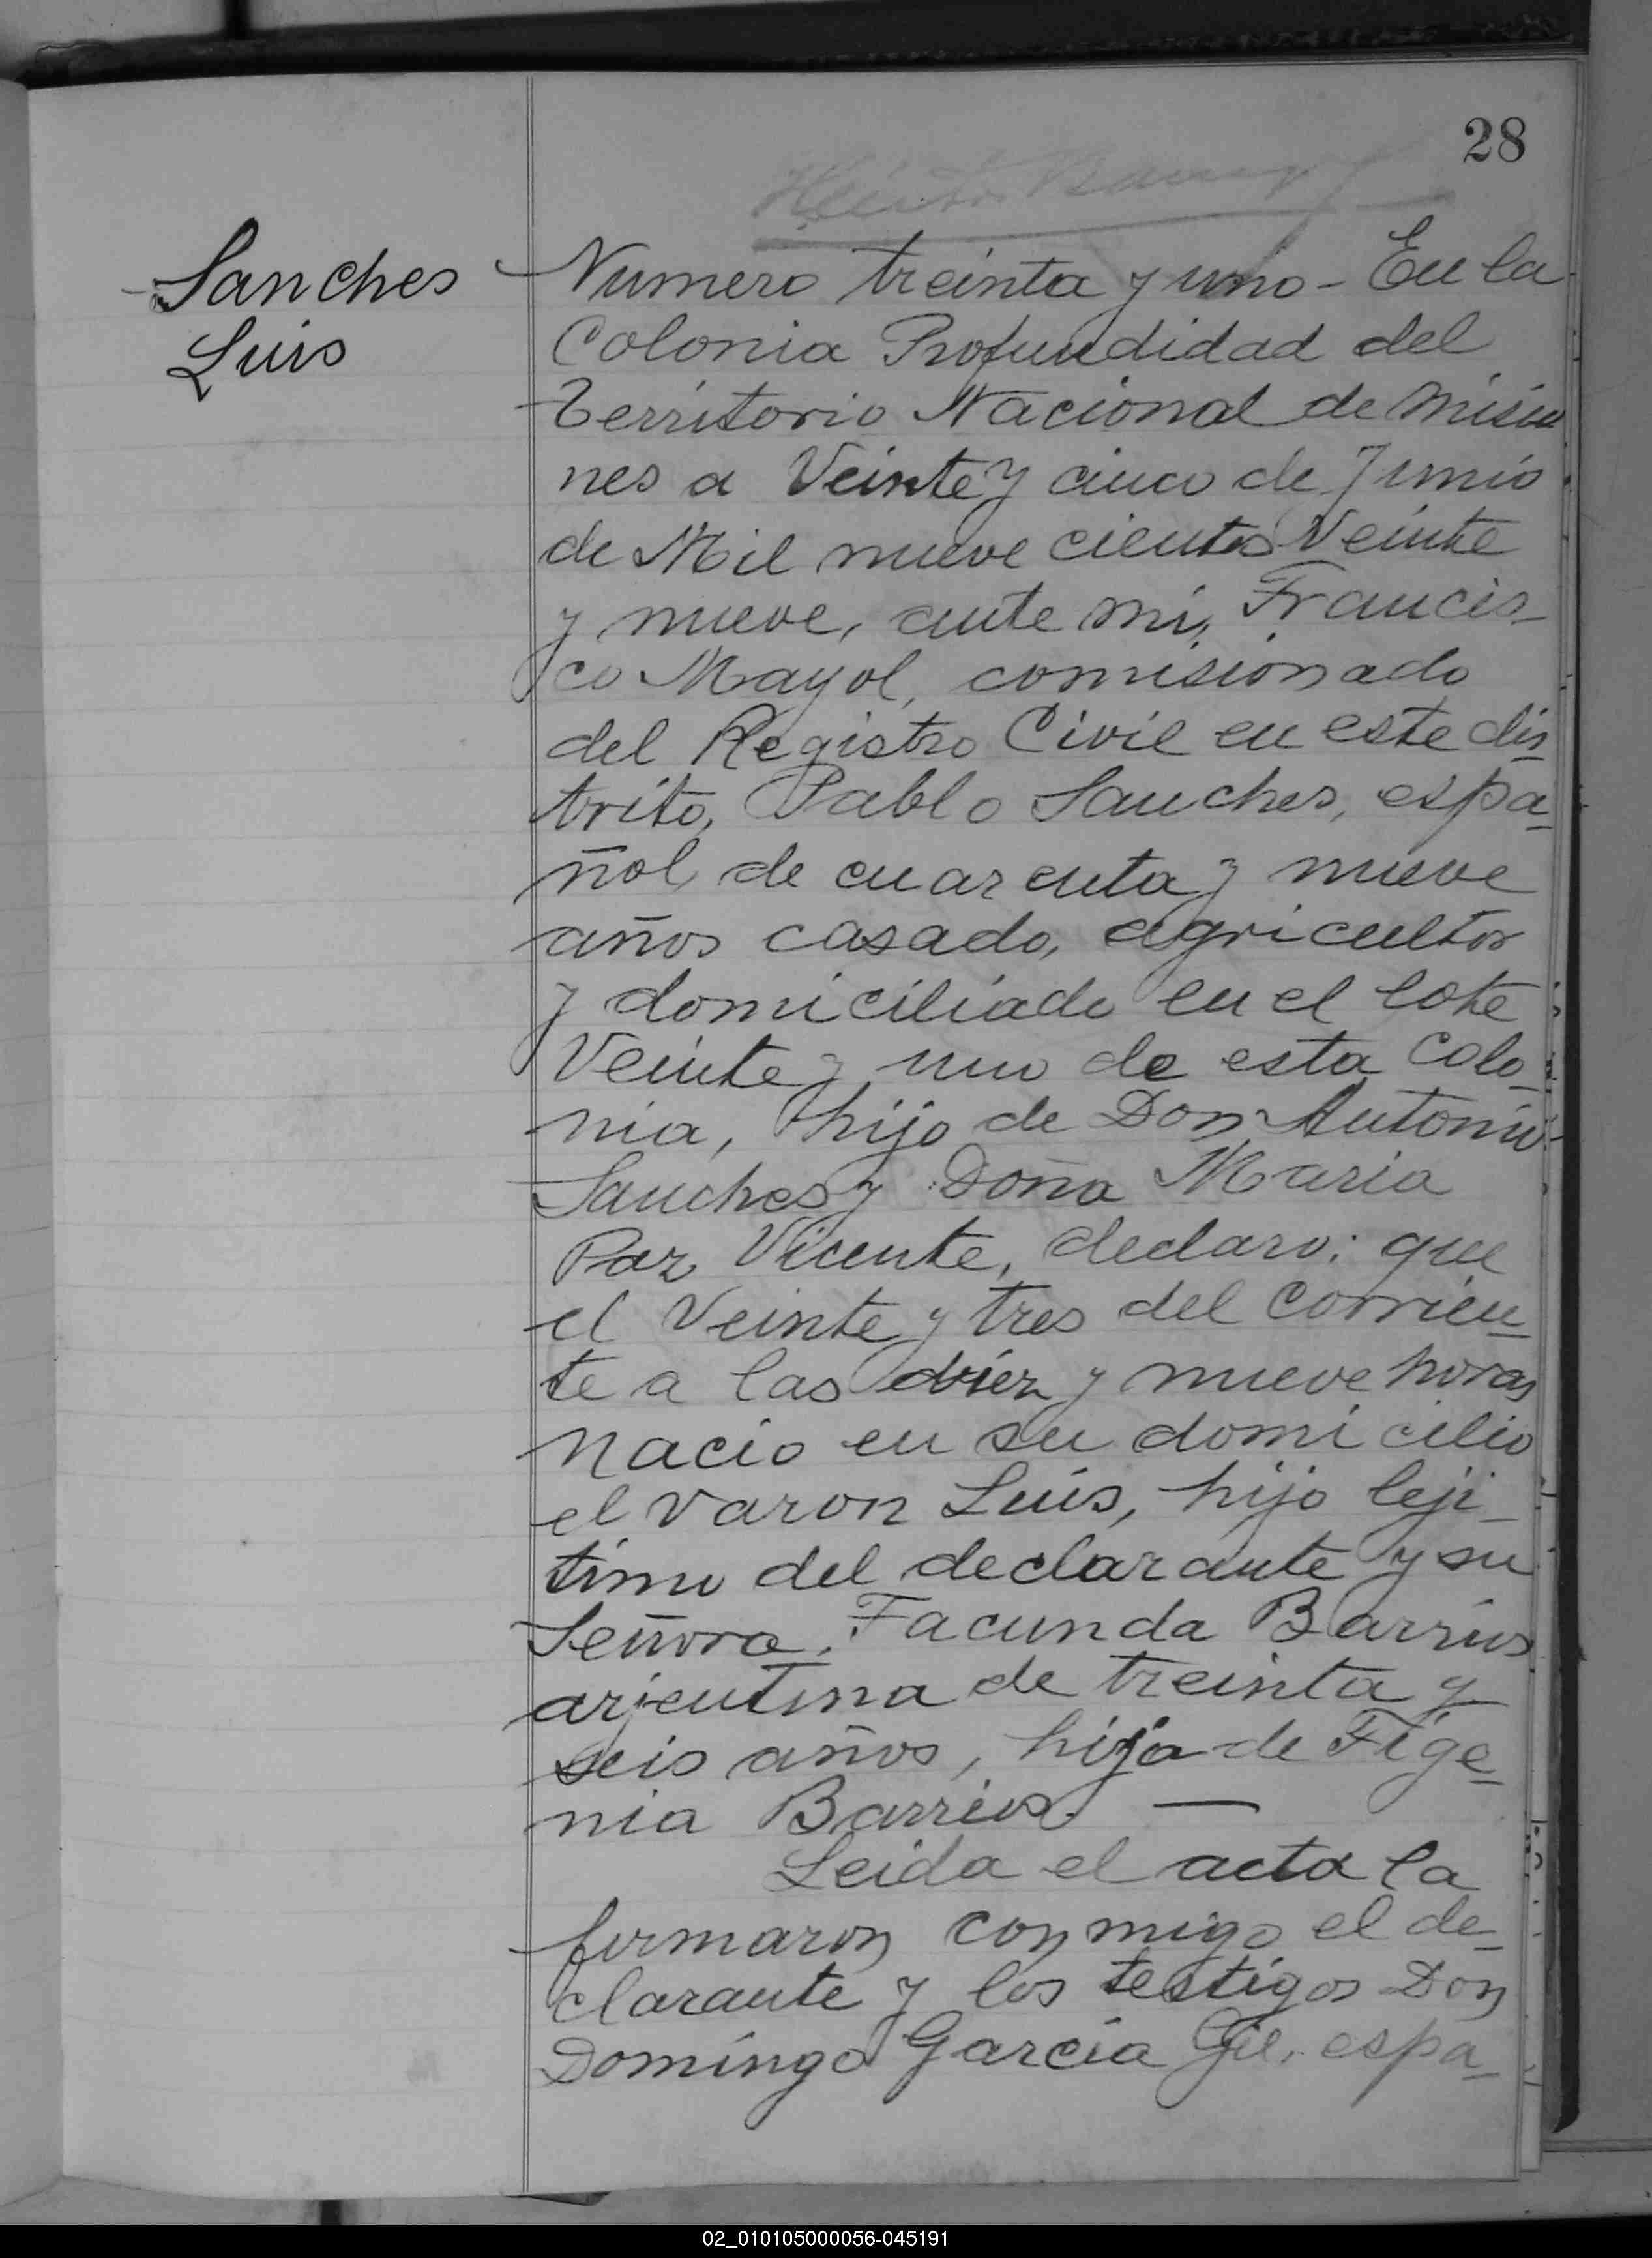 28
Sanches
Luis
Numero treinta y uno - En la
Colonia Profundidad del
Territorio Nacional de Misio
nes a Veinte y cinco de Junio
de Mil nueve cientos Veinte
y nueve, ante mi, Francis-
co Mayol, comisionado
del Registro Civil en este dis
trito, Pablo Sanches, espa-
ñol, de cuarenta y nueve
años casado, agricultor
y domiciliado en el lote
Veinte y uno de esta Colo-
nia, hijo de Don Antonio
Sanches y Doña Maria
Paz Vicente, declaro: que
el Veinte y tres del corrien-
te a las diez y nueve horas
Nacio en su domicilio
el varon Luis, hijo leji-
timo del declarante y su
Señora, Facunda Barrios
arjentina de treinta y
seis años, hija de Fige-
nia Barrios. —
Leida el acta la
firmaron conmigo el de-
clarante y los testigos Don
Domingo Garcia Gil, espa-
02_010105000056-045191